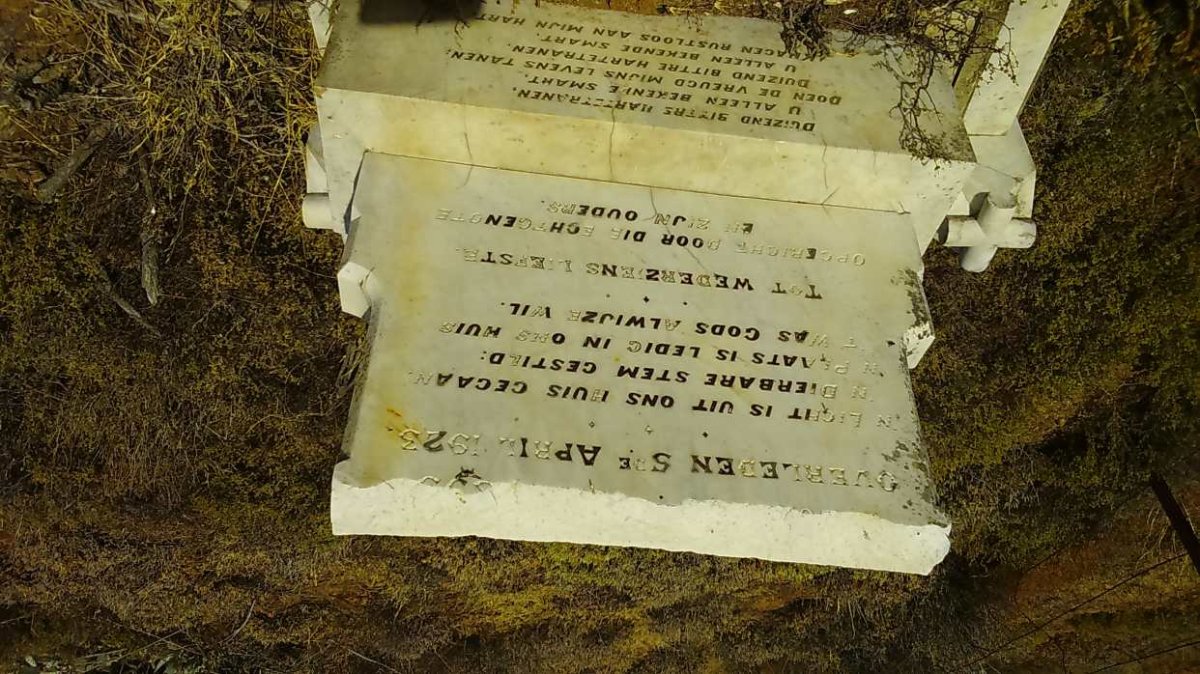 OVERLEDEN 5DE APRIL 1923.
'N LICHT IS UIT ONS HUIS GEGAAN,
'N DIERBARE STEM GESTILD:
'N PLAATS IS LEDIG IN ONS HUIS
'T WAS GODS ALWIJZE WIL.
TOT WEDERZIENS LIEFSTE.
OPGERICHT DOOR DIE ECHTGENOTE
EN ZIJN OUDERS.
DUIZEND BITTRE HARTETRANEN,
U ALLEEN BEKENDE SMART.
DOEN DE VREUGD MIJNS LEVENS TANEN,
DUIZEND BITTRE HARTETRANEN,
U ALLEEN BEKENDE SMART.
KNAGEN RUSTLOOS AAN MIJN HART.